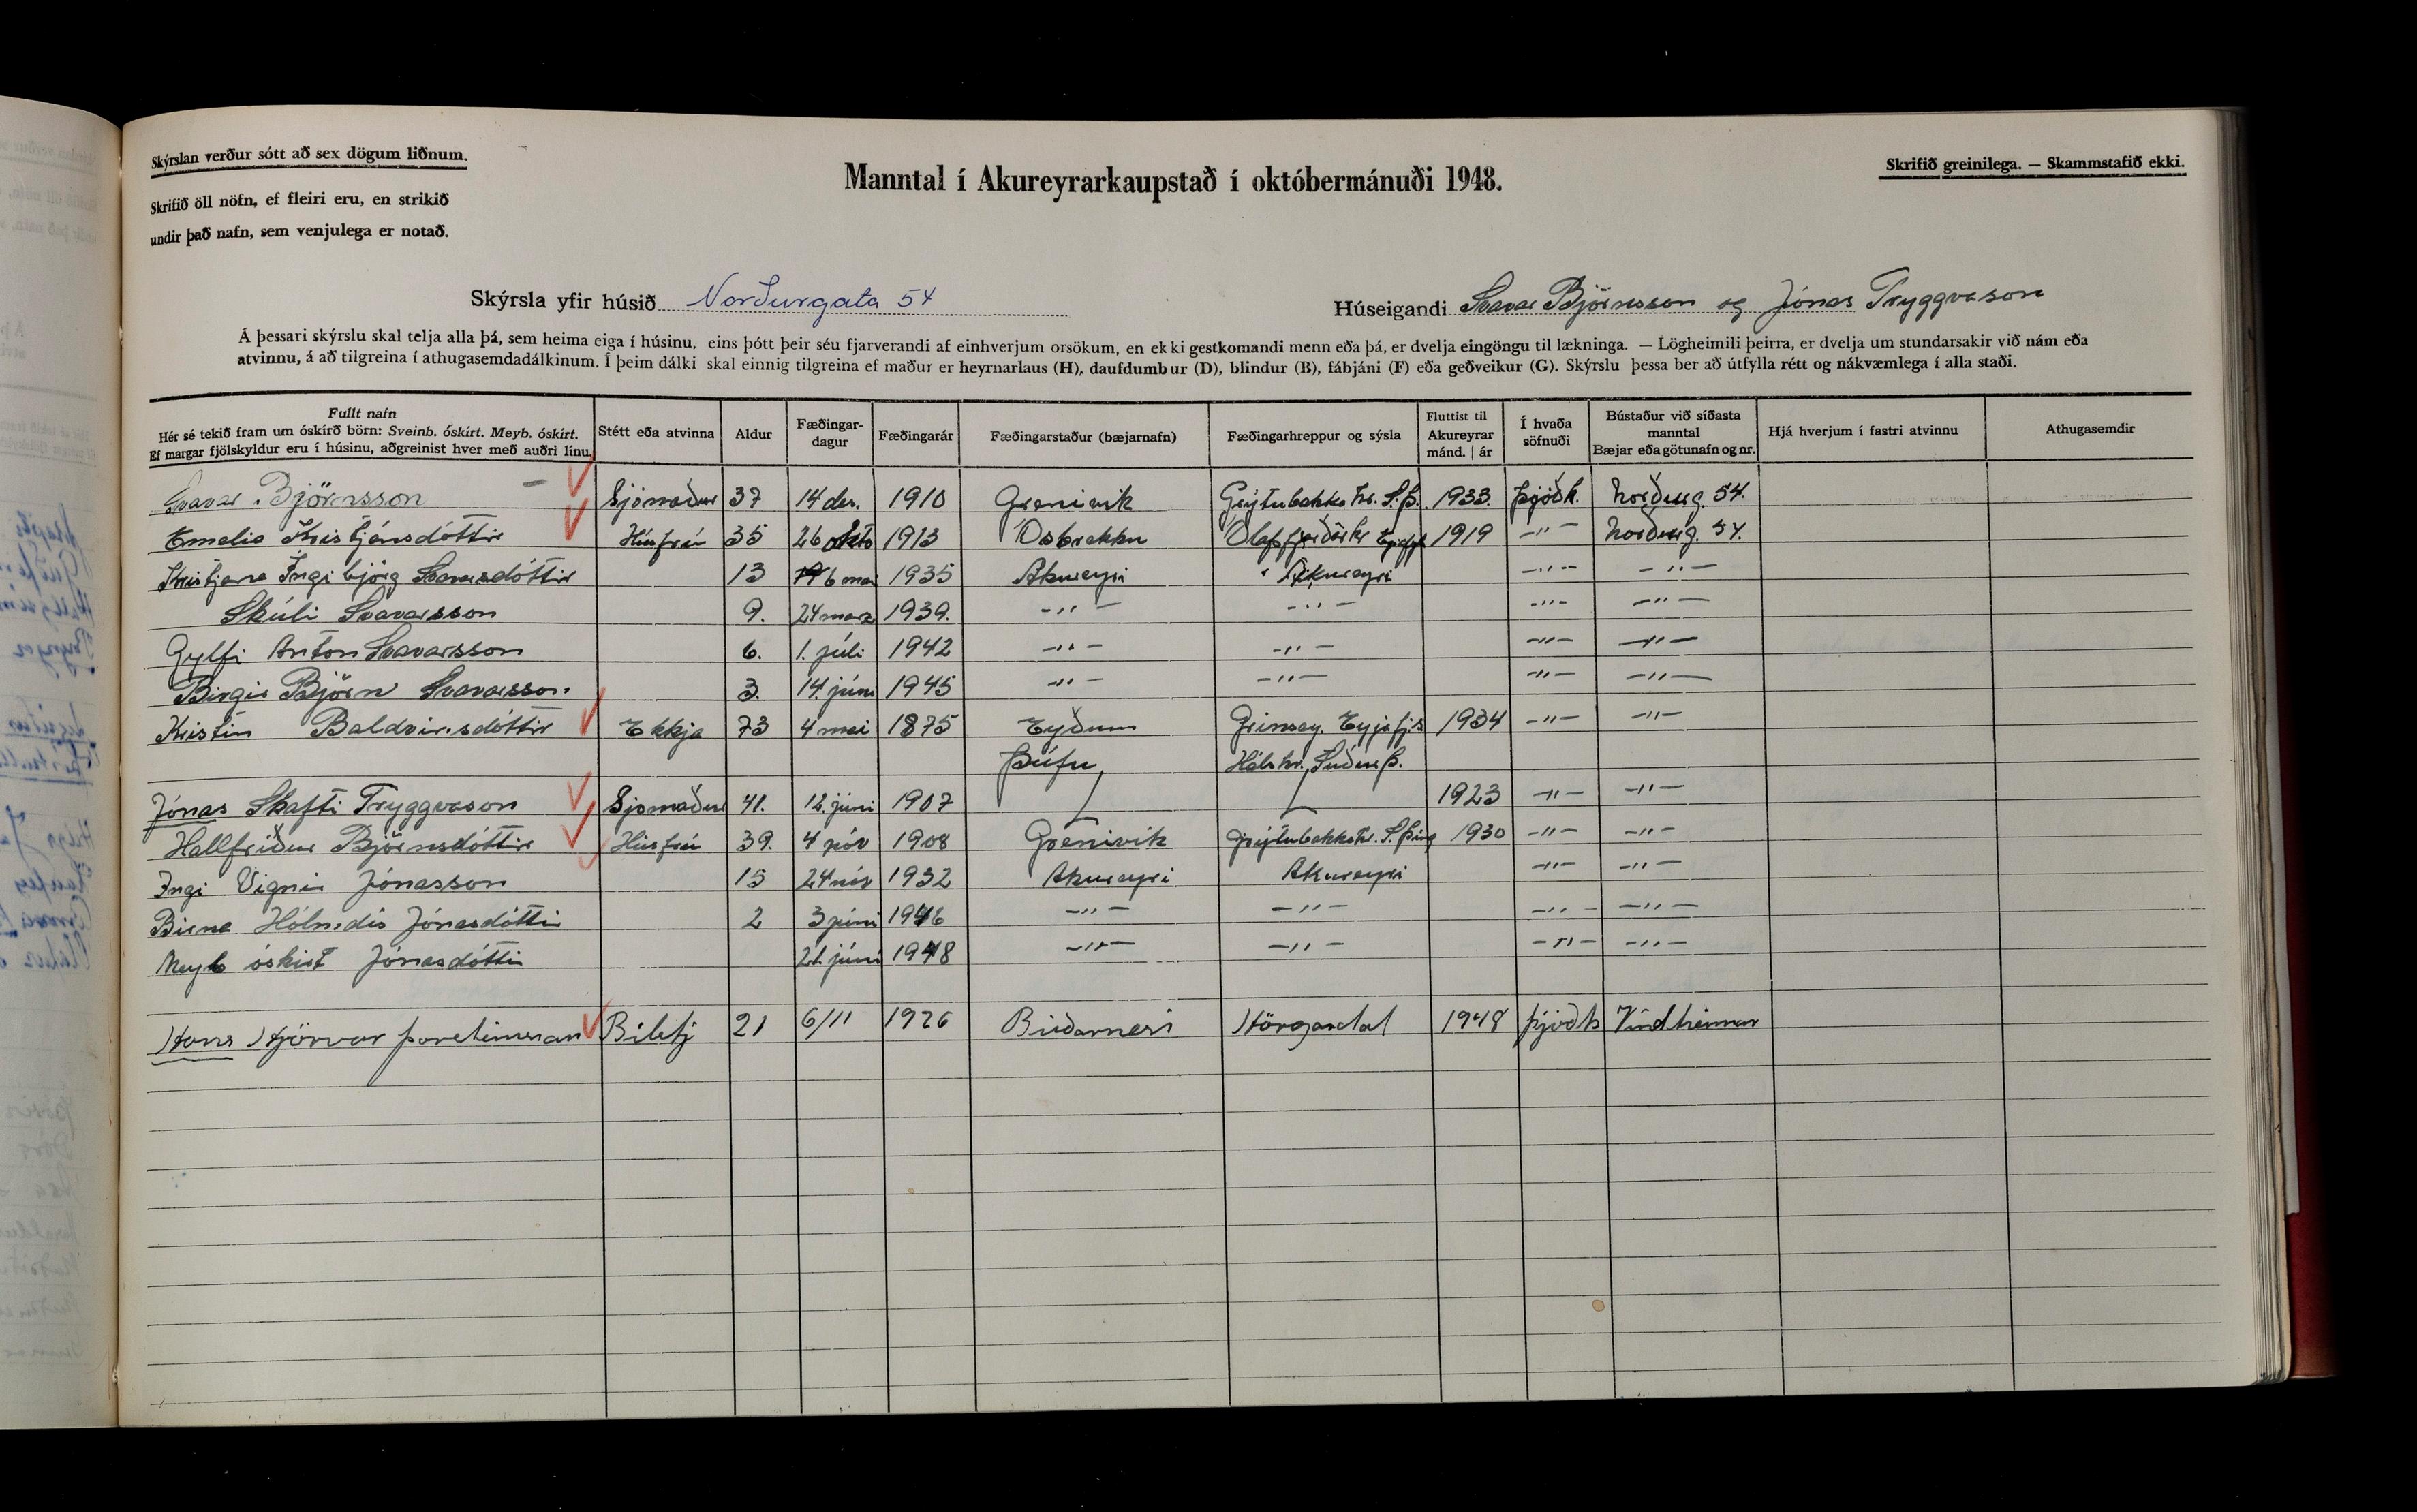 Skýrslan verður sótt að sex dögum liðnum.
Skrifið öll nöfn, ef fleiri eru, en strikið
undir það nafn, sem venjulega er notað.
Manntal í Akureyrarkaupstað í októbermánuði 1948.
Skrifið greinilega. — Skammstafið ekki.
Skýrsla yfir húsið Norðurgata 54
Húseigandi Svavar Björnsson og Jónas Tryggvason
Á þessari skýrslu skal telja alla þá, sem heima eiga í húsinu, eins þótt þeir séu fjarverandi af einhverjum orsökum, en ekki gestkomandi menn eða þá, er dvelja eingöngu til lækninga. — Lögheimili þeirra, er dvelja um stundarsakir við nám eða
atvinnu, á að tilgreina í athugasemdadálkinum. Í þeim dálki skal einnig tilgreina ef maður er heyrnarlaus (H), daufdumbur (D), blindur (B), fábjáni (F) eða geðveikur (G). Skýrslu þessa ber að útfylla rétt og nákvæmlega í alla staði.
Fullt nafn
Hér sé tekið fram um óskírð börn: Sveinb. óskírt. Meyb. óskírt.
Ef margar fjölskyldur eru í húsinu, aðgreinist hver með auðri línu.
Stétt eða atvinna
Aldur
Fæðingar-
dagur
Fæðingarár
Fæðingarstaður (bæjarnafn)
Fæðingarhreppur og sýsla
Fluttist til
Akureyrar
mánd. | ár
Í hvaða
söfnuði
Bústaður við síðasta
manntal
Bæjar eða götunafn og nr.
Hjá hverjum í fastri atvinnu
Athugasemdir
Svavar Björnsson – Sjómaður 37 14 des. 1910 Grenivík Grýtubakkahr. S.Þ. 1933. Þjóðk. Norðurg. 54.
Emelía Kristjánsdóttir Húsfrú 35 26 okto 1913 Ósbrekku Ólafsfjarðarhr 1919 -"- Norðurg. 54.
Kristjana Ingibjörg Svavarsdóttir 13 6 mai 1935 Akureyri Akureyri -"- -"-
Skúli Svavarsson 9. 24 marz 1939. -"- -"- -"- -"-
Gylfi Anton Svavarsson 6. 1. júli 1942 -"- -"- -"- -"-
Birgir Björn Svavarsson. 3. 14. júni 1945 -"- -"- -"- -"-
Kristín Baldvinsdóttir Ekkja 73 4 mai 1875 Eyðum Grimsey. Eyjafj.s 1934 -"- -"-
Þúfu, Hálshr., Suður Þ.
Jónas Skafti Tryggvason Sjomaður 41. 12. júni 1907 1923 -"- -"-
Hallfríður Björnsdóttir Húsfrú 39. 4 nóv 1908 Grenivík Grýtubakkahr. S.Þing 1930 -"- -"-
Ingi Vignir Jónasson 15 24 nóv 1932 Akureyri Akureyri -"- -"-
Birna Hólmdís Jónasdóttir 2 3 júni 1946 -"- -"- -"- -"-
Meyb óskirt Jónasdóttir 21. júni 1948 -"- -"- -"- -"-
Hans Hjörvar Bilstj 21 6/11 1926 Búðarnesi Hörgardal 1948 Þjóðk Vindheimar